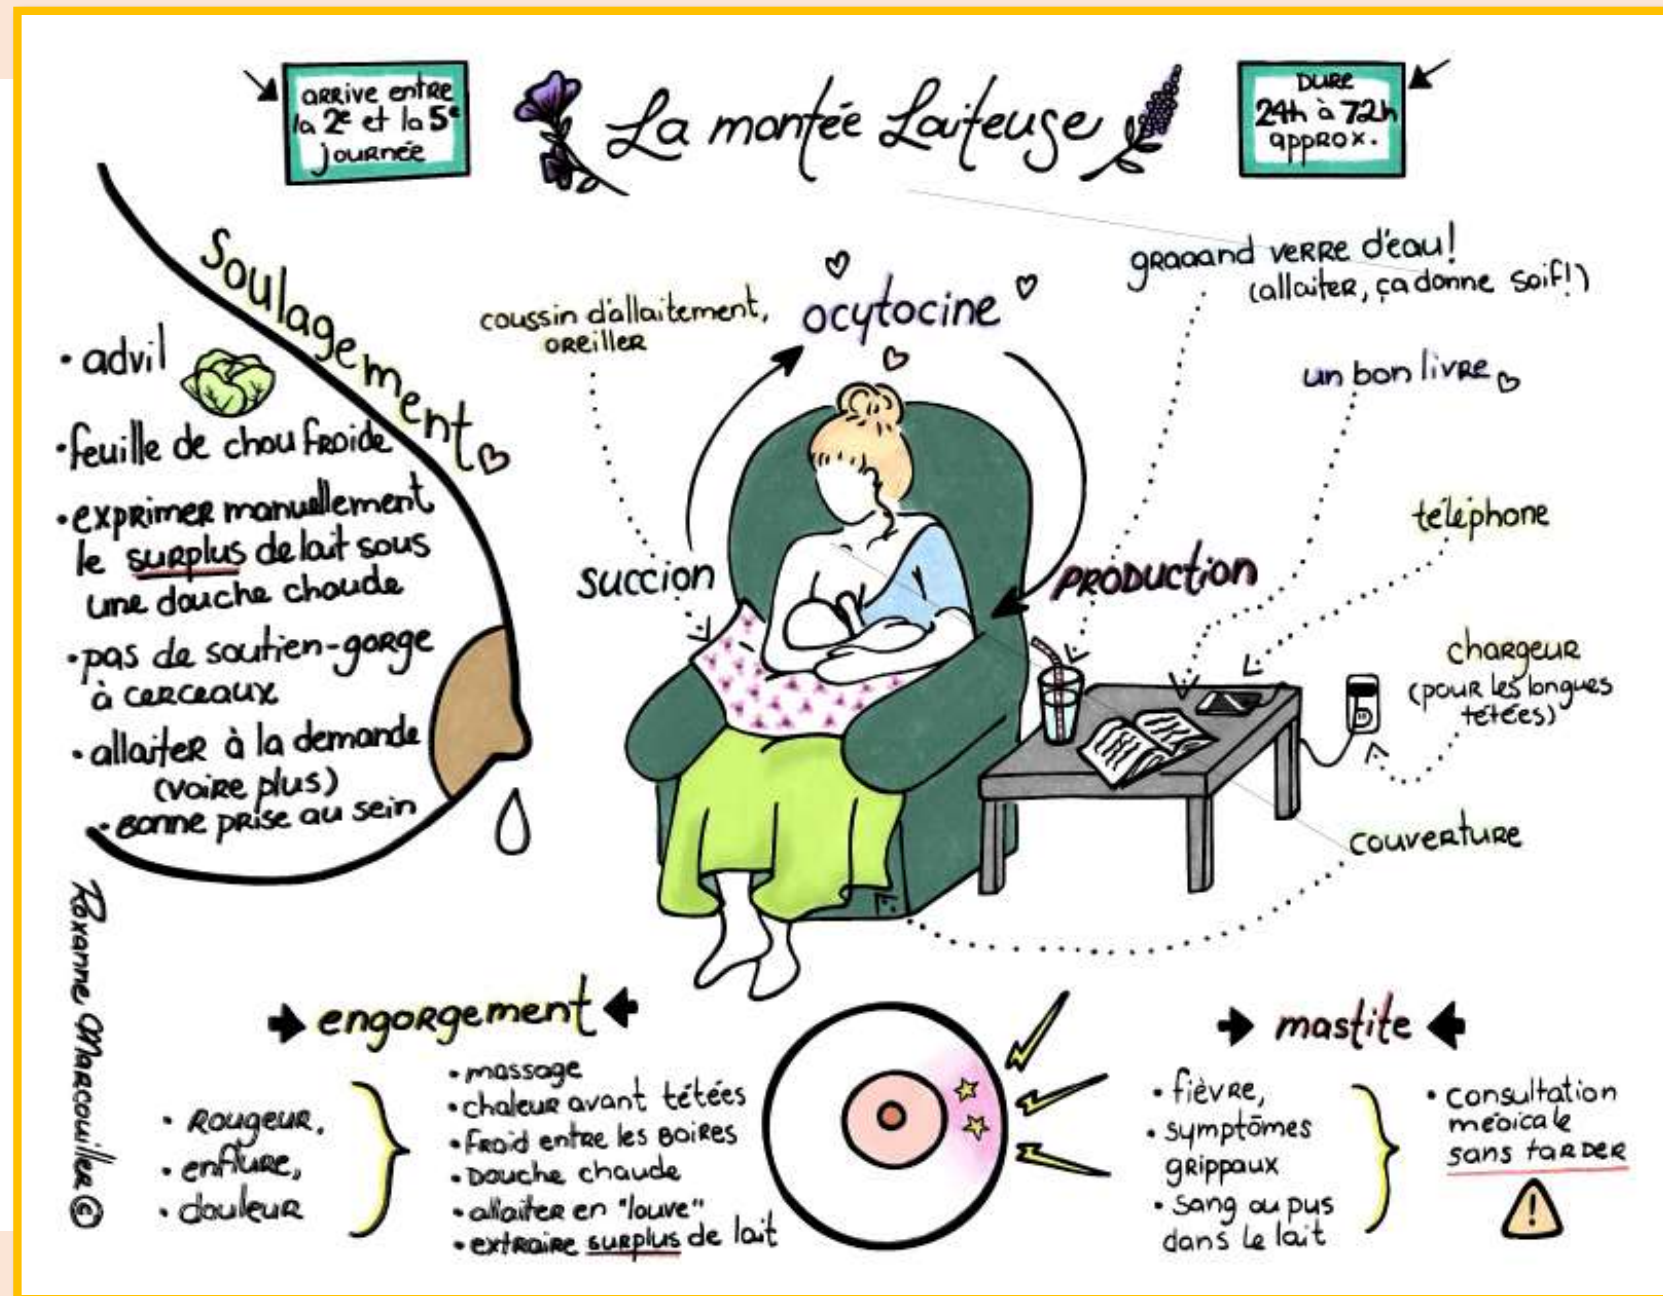 arrive entre
la 2e et la 5e
journée
La montée Laiteuse
Dure
24h à 72h
approx.
Soulagement
• advil
• feuille de chou froide
• exprimer manuellement
le surplus de lait sous
une douche chaude
• pas de soutien-gorge
à cerceaux
• allaiter à la demande
(voire plus)
• Bonne prise au sein
coussin d'allaitement,
oreiller
ocytocine
succion
production
graaand verre d'eau!
(allaiter, ça donne soif!)
un bon livre
téléphone
chargeur
(pour les longues
tétées)
couverture
Roxanne Marcouiller ©
engorgement
• Rougeur,
• enflure,
• douleur
• massage
• chaleur avant tétées
• froid entre les boires
• Douche chaude
• allaiter en "louve"
• extraire surplus de lait
mastite
• fièvre,
• symptômes
grippaux
• Sang ou pus
dans le lait
• consultation
médicale
sans tarder
!